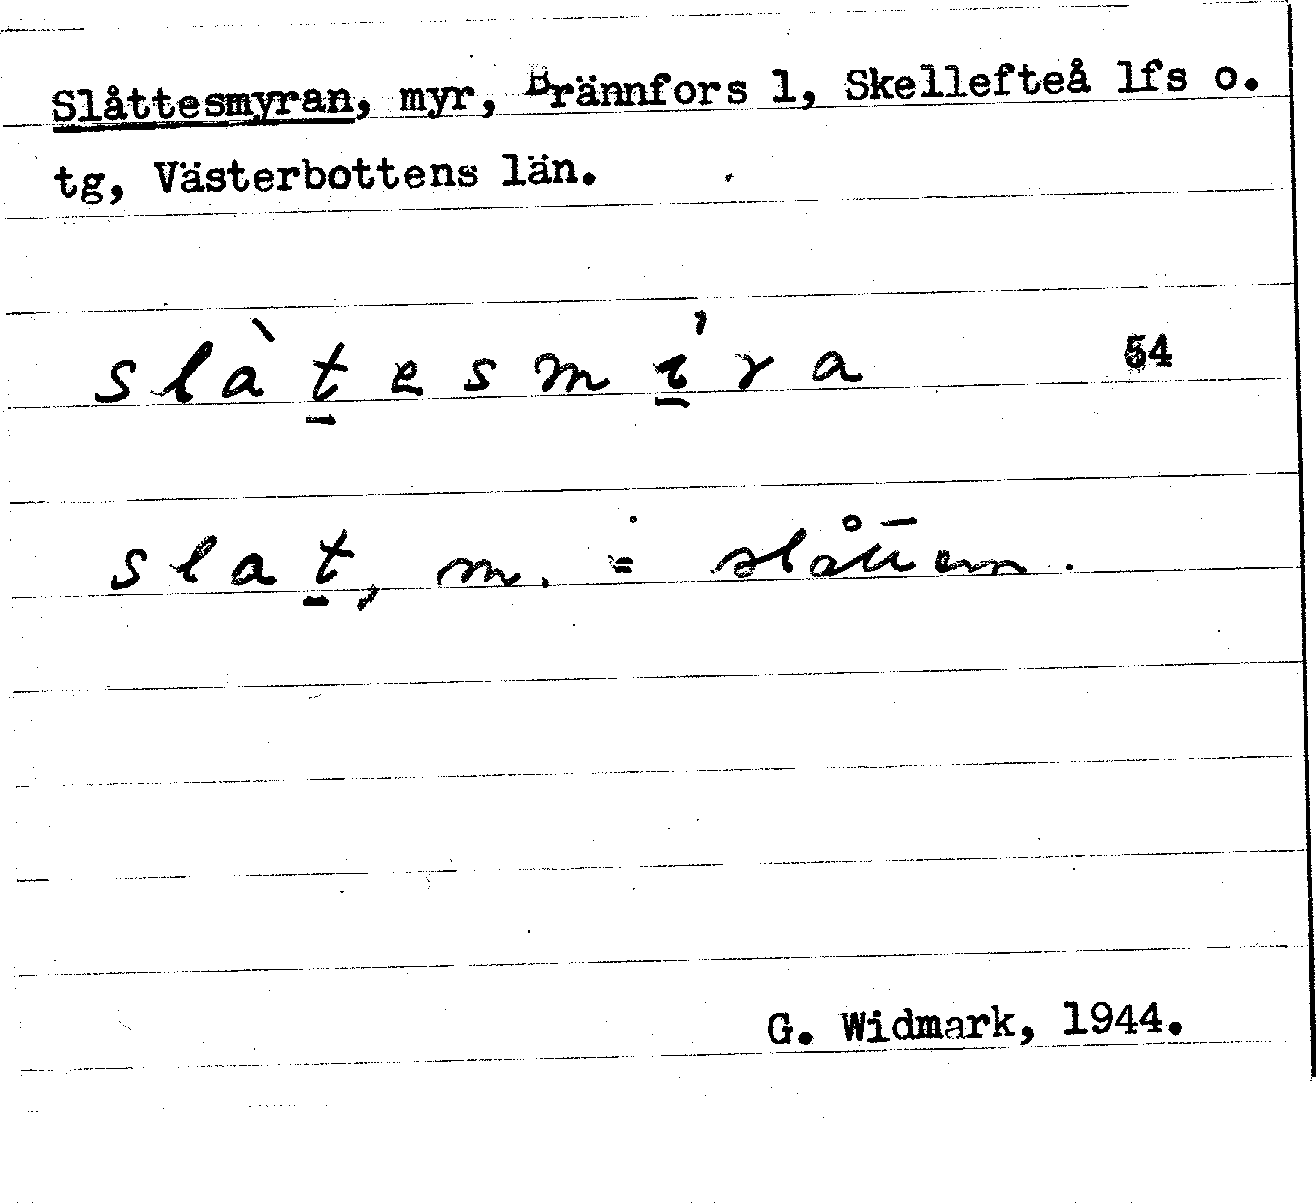 Slåttesmyran, myr, Brännfors 1, Skellefteå lfs o.
tg, Västerbottens län.
slàt̲esmı̲́ra 54
slat̲, m. = slåttern.
G. Widmark, 1944.